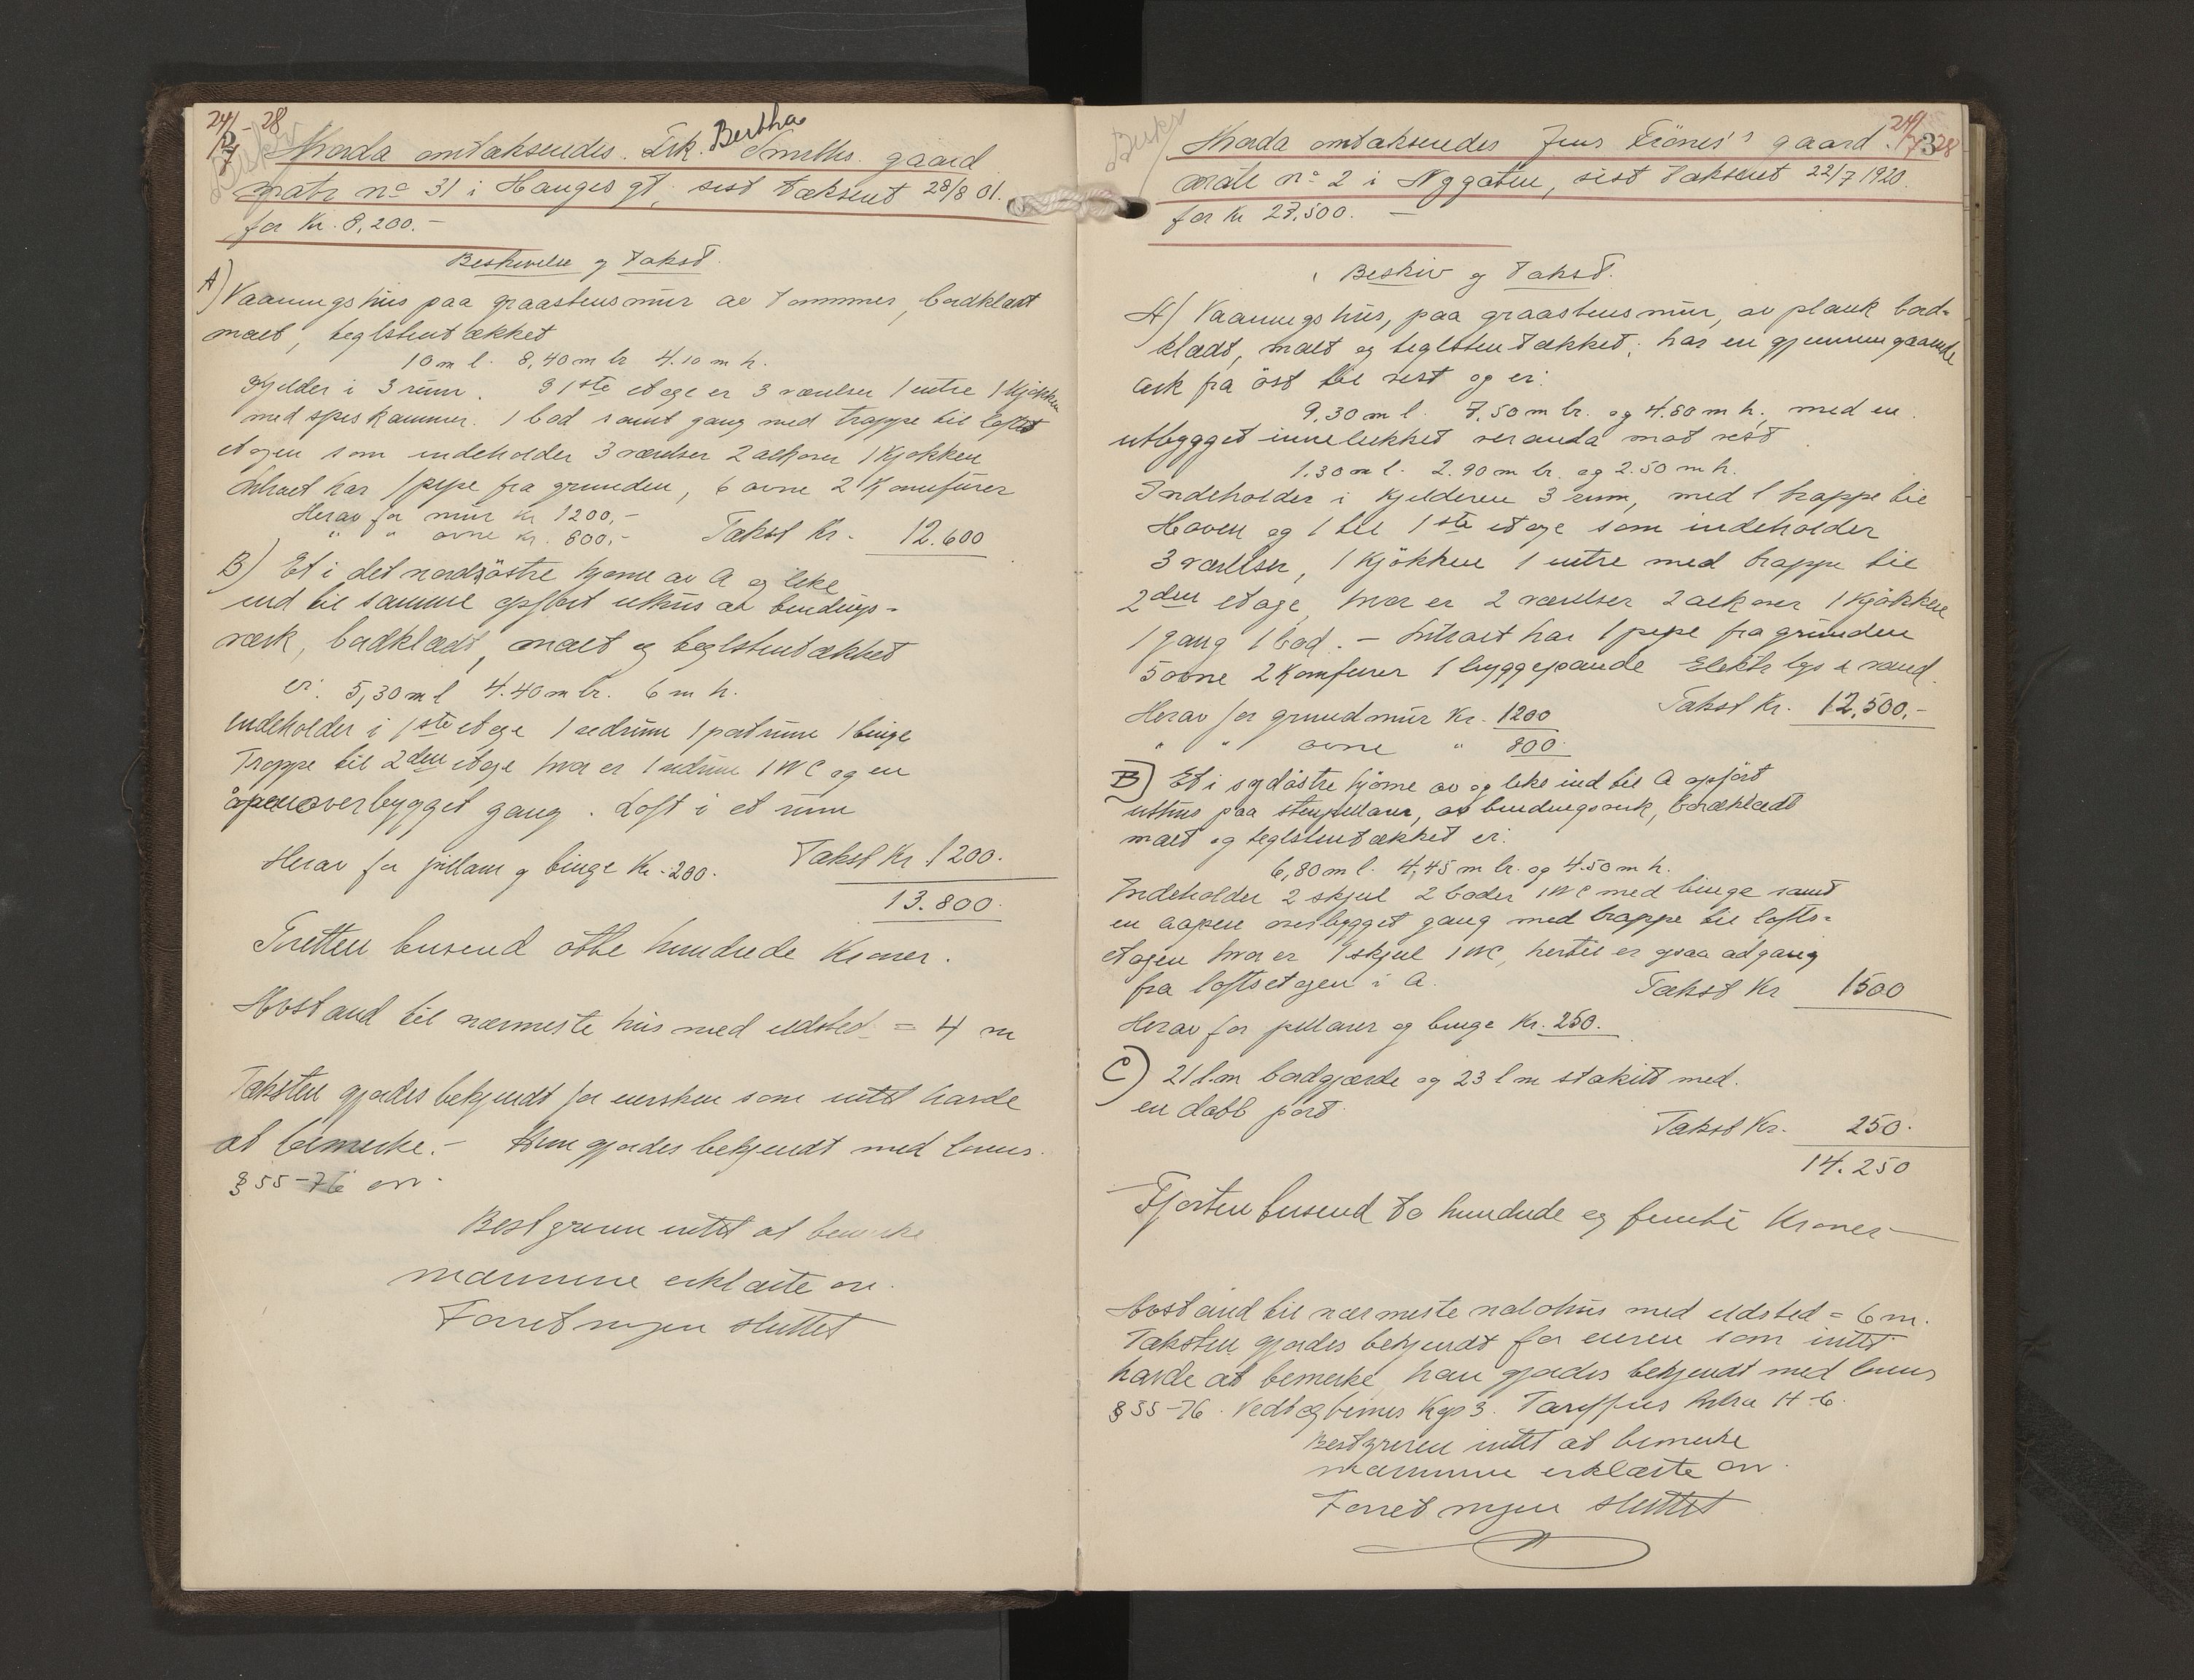 24/7 - 28
2
Beskr
Hvorda omtaksertes Frk. Bertha Smiths gaard
matr no 31 i Hauges gt, sist taksert 28/8 01.
for Kr. 8,200.-
Beskrivelse og Takst.
A) Vaaningshus paa graastensmur av tømmer, bordklædt
malt, teglstentækket
10 m l. 8,40 m br 4.10 m h.
Kjelder i 3 rum. I 1ste etage er 3 værelser 1 entre 1 kjøkken
med spiskammer. 1 bod samt gang med trappe til lofts
etagen som indeholder 3 værelser 2 alkover 1 kjøkken
Huset har 1 pipe fra grunden, 6 ovne 2 komfurer
Herav for mur kr 1200,-
" " ovne kr. 800,- Takst Kr. 12.600
B) Et i det nordøstre hjørne av A og like
ind til samme opført uthus av bindings-
verk, bordklædt, malt og teglstentækket
er: 5,30 m l 4.40 m br. 6 m h.
indeholder i 1ste etage 1 vedrum 1 portrum 1 binge
Trappe til 2den etage hvor er 1 vedrum 1 WC og en
åpen overbygget gang. Loft i et rum
Herav for pillarer og binge Kr. 200. Takst Kr. 1200.
13.800.
Tretten tusend otte hundrede Kroner.
Avstand til nærmeste hus med ildsted = 4 m
Taksten gjordes bekjendt for eiersken som intet havde
at bemerke.- Hun gjordes bekjendt med lovens
§ 55-76
Bestyreren intet at bemerke
mændene erklærte
Forretningen sluttet
24/7 28
3
Beskr
Hvorda omtaksertes Jens Fiönes's gaard
matr no 2 i Nygaten, sist taksert 22/7 1920.
for Kr 27.500. -
Beskriv og Takst.
A) Vaaningshus, paa graastensmur, av plank bord-
klædt, malt og teglstentækket; har en gjennemgaaende
ark fra öst til vest og er:
9,30 m l. 7,50 m br. og 4.60 m h; med en
utbygget innelukket veranda mot vest
1.30 m l. 2.90 m br. og 2.50 m h.
Indeholder i kjelderen 3 rum, med 1 trappe til
Haven og 1 til 1ste etage som indeholder
3 værelser, 1 kjökken 1 entre med trappe til
2den etage, hvor er 2 værelser 2 alkover 1 kjökken
1 gang 1 bod. - Huset har 1 pipe fra grunden
5 ovne 2 komfurer 1 bryggepande Elektr lys & vand.
Herav for grundmur Kr. 1200 Takst Kr. 12,500.-
" " ovne " 800.
B) Et i sydöstre hjörne av og like ind til A opfört
uthus paa stenpillarer, av bindingsverk, bordklædt
malt og teglstentækket er:
6,80 m l. 4,45 m br. og 4.50 m h.
Indeholder 2 skjul 2 boder 1 WC med binge samt
en aapen overbygget gang med trappe til lofts-
etagen hvor er 1 skjul 1 WC, hertil er ogsaa adgang
fra loftsetagen i A. Takst Kr 1500
Herav for pillarer og binge Kr. 250.
C) 21 l.m bordgjærde og 23 l m stakitt med.
en dobb port
Takst Kr. 250.
14.250
Fjorten tusend to hundrede og femti Kroner
Avstand til nærmeste nabohus med ildsted = 6 m.
Taksten gjordes bekjendt for eieren som intet
havde at bemerke han gjordes bekjendt med lovens
§ 55-76.
Bestyreren intet at bemerke
mændene erklærte
Forretningen sluttet